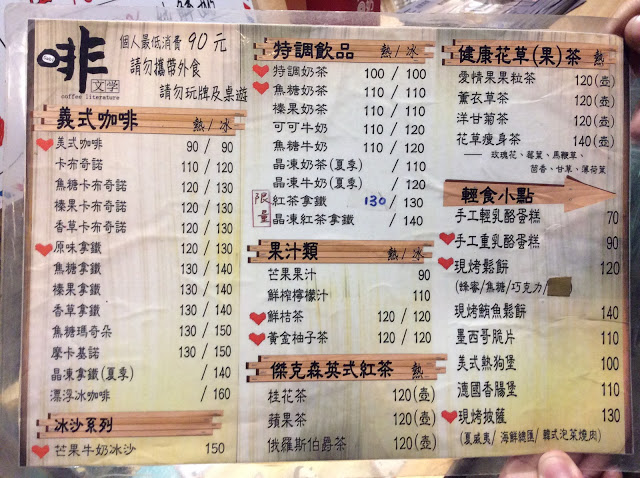 啡
文学
coffee literature
個人最低消費 90 元
請勿攜帶外食
請勿玩牌及桌遊
義式咖啡 熱/冰
美式咖啡 90 / 90
卡布奇諾 110 / 120
焦糖卡布奇諾 120 / 130
榛果卡布奇諾 120 / 130
香草卡布奇諾 120 / 130
原味拿鐵 120 / 130
焦糖拿鐵 130 / 140
榛果拿鐵 130 / 140
香草拿鐵 130 / 140
焦糖瑪奇朵 130 / 150
摩卡基諾 130 / 150
晶凍拿鐵(夏季) / 140
漂浮冰咖啡 / 160
冰沙系列
芒果牛奶冰沙 150
特調飲品 熱/冰
特調奶茶 100 / 100
焦糖奶茶 110 / 110
榛果奶茶 110 / 110
可可牛奶 110 / 110
焦糖牛奶 110 / 110
晶凍奶茶(夏季) / 110
晶凍牛奶(夏季) / 120
限量
紅茶拿鐵 130 / 130
晶凍紅茶拿鐵 / 140
果汁類 熱/冰
芒果果汁 90
鮮榨檸檬汁 110
鮮桔茶 120 / 120
黃金柚子茶 120 / 120
傑克森英式紅茶 熱
桂花茶 120(壺)
蘋果茶 120(壺)
俄羅斯伯爵茶 120(壺)
健康花草(果)茶 熱
愛情果果粒茶 120(壺)
薰衣草茶 120(壺)
洋甘菊茶 120(壺)
花草瘦身茶 140(壺)
——玫瑰花、莓葉、馬鞭草、
茴香、甘草、薄荷葉
輕食小點
手工輕乳酪蛋糕 70
手工重乳酪蛋糕 90
現烤鬆餅 120
(蜂蜜/焦糖/巧克力/
現烤鮪魚鬆餅 140
墨西哥脆片 110
美式熱狗堡 100
德國香腸堡 110
現烤披薩 130
(夏威夷/海鮮總匯/韓式泡菜燒肉)